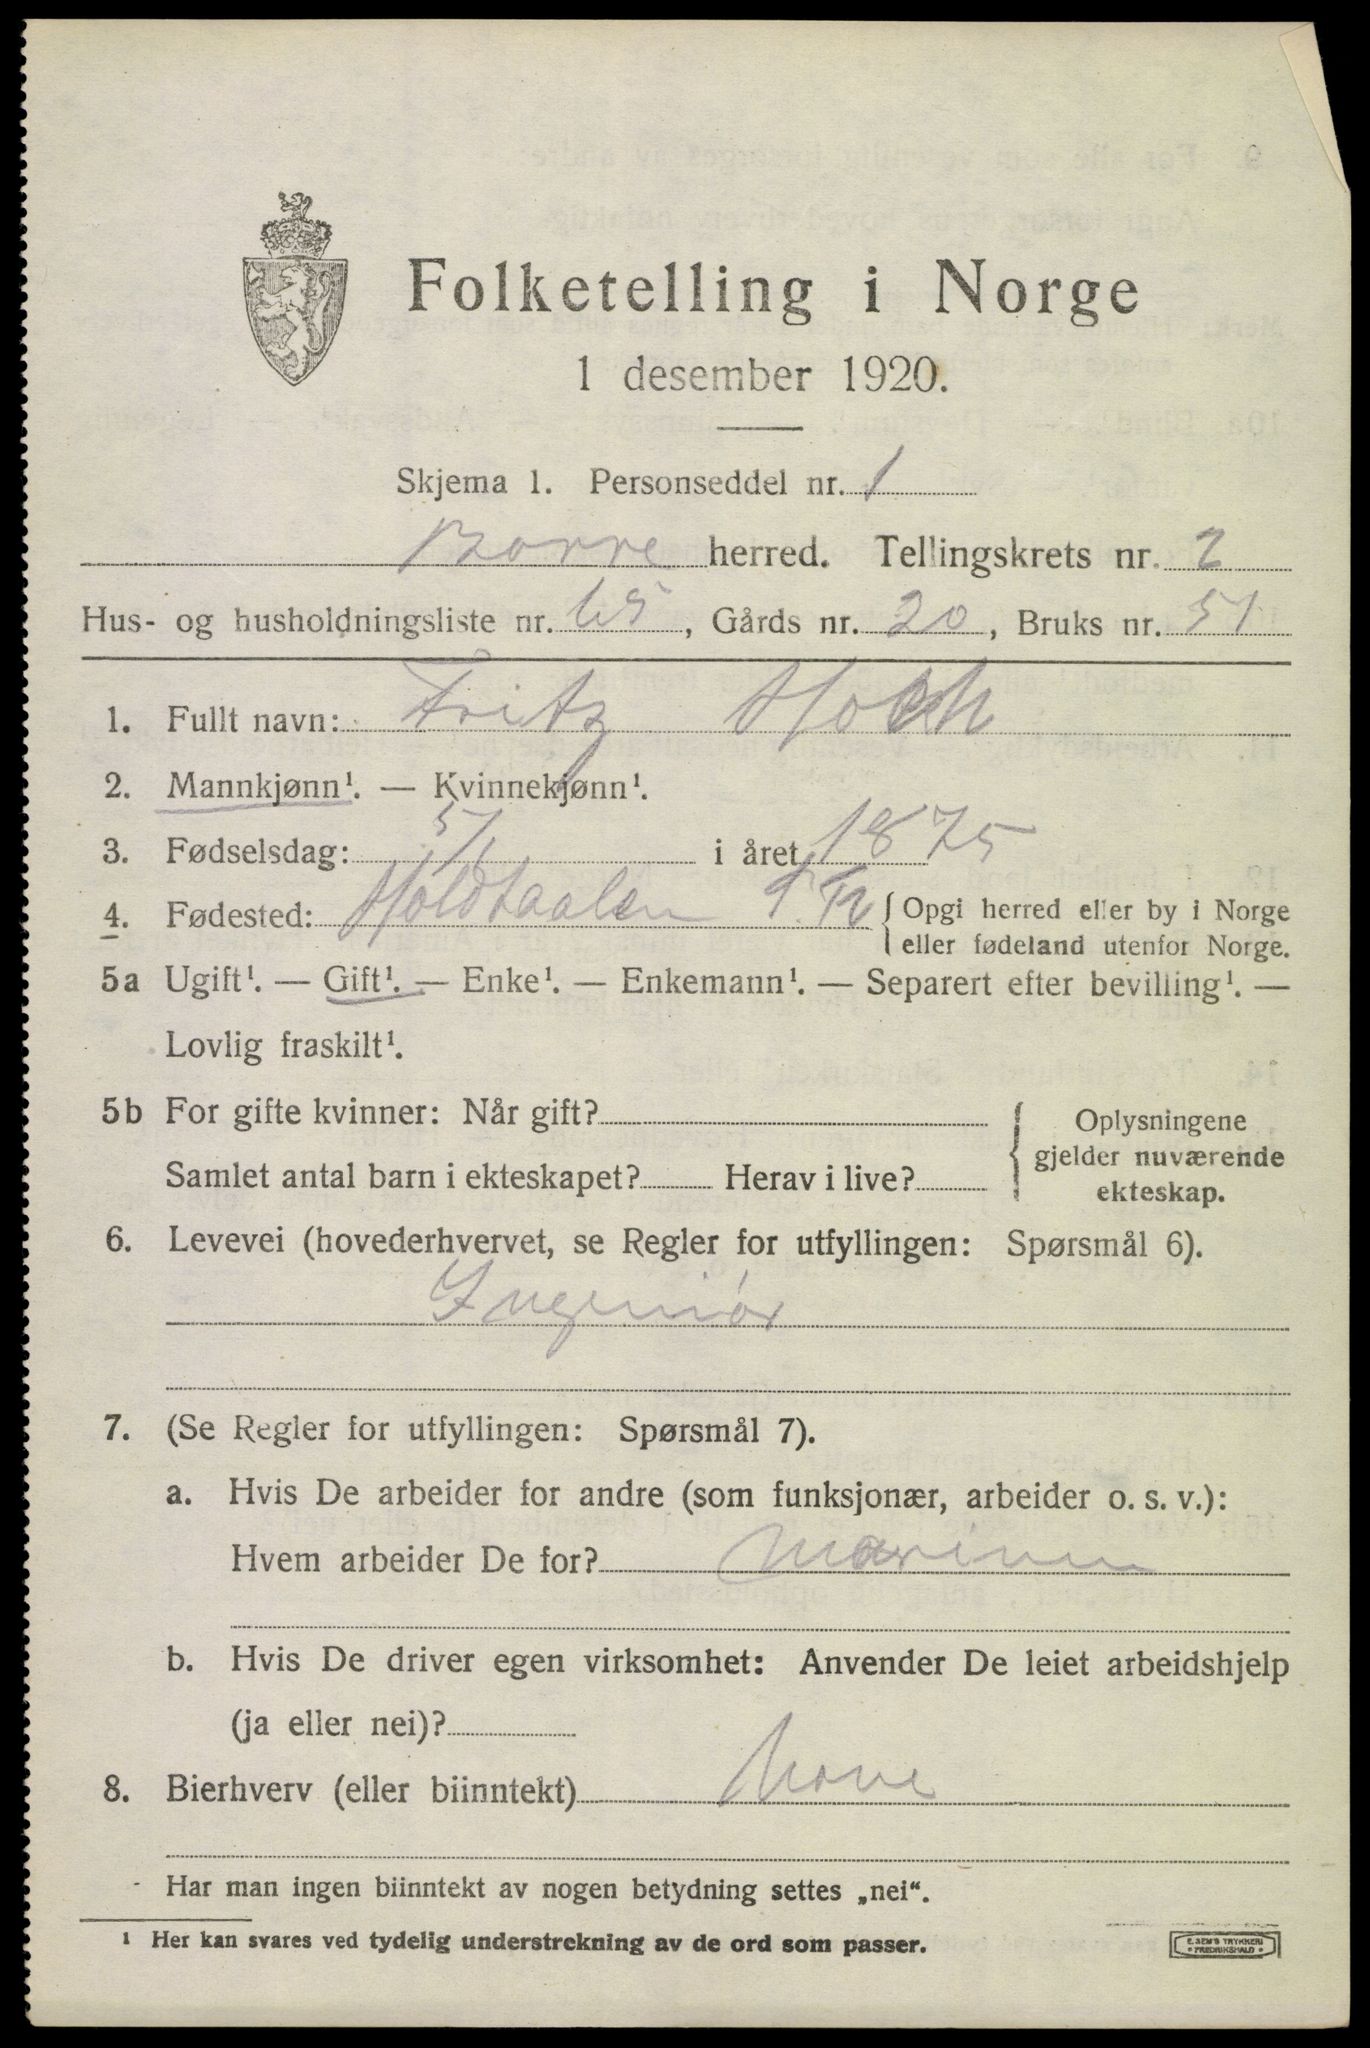 Folketelling i Norge
1 desember 1920.
Skjema 1. Personseddel nr. 1
Borre herred. Tellingskrets nr. 2
Hus- og husholdningsliste nr. 65, Gårds nr. 20, Bruks nr. 51
1. Fullt navn: Fritz
2. Mannkjønn¹. — Kvinnekjønn¹.
3. Fødselsdag: 5/1 i året 1875
4. Fødested: Holdtaalen S. Tr { Opgi herred eller by i Norge
eller fødeland utenfor Norge.
5a Ugift¹. — Gift¹. — Enke¹. — Enkemann¹. — Separert efter bevilling¹. —
Lovlig fraskilt¹.
5b For gifte kvinner: Når gift?
Samlet antal barn i ekteskapet? Herav i live?
Oplysningene
gjelder nuværende
ekteskap.
6. Levevei (hovederhvervet, se Regler for utfyllingen: Spørsmål 6).
Ingeniør
7. (Se Regler for utfyllingen: Spørsmål 7).
a. Hvis De arbeider for andre (som funksjonær, arbeider o. s. v.):
Hvem arbeider De for? Marinen
b. Hvis De driver egen virksomhet: Anvender De leiet arbeidshjelp
(ja eller nei)?
8. Bierhverv (eller biinntekt)
Har man ingen biinntekt av nogen betydning settes „nei“.
¹ Her kan svares ved tydelig understrekning av de ord som passer.
E. SEM'S TRYKKERI
• FREDRIKSHALD •